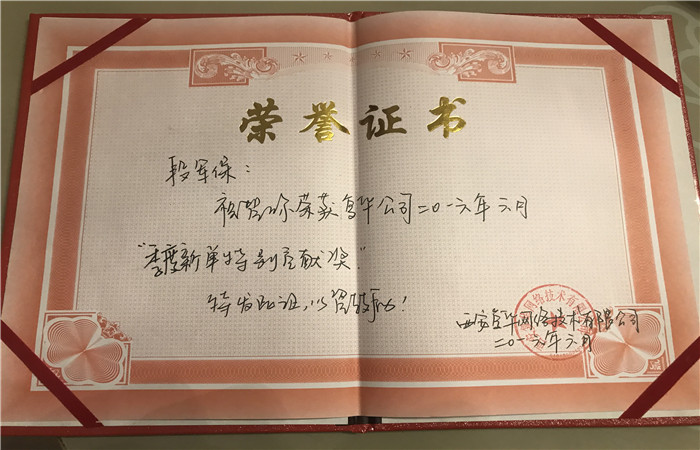 荣誉证书
段军保：
祝贺你荣获阜华公司二〇一六年六月
“季度新单特别贡献奖”
特发此证，以资鼓励！
网络技术有限
西安阜华网络技术有限公司
二〇一六年六月